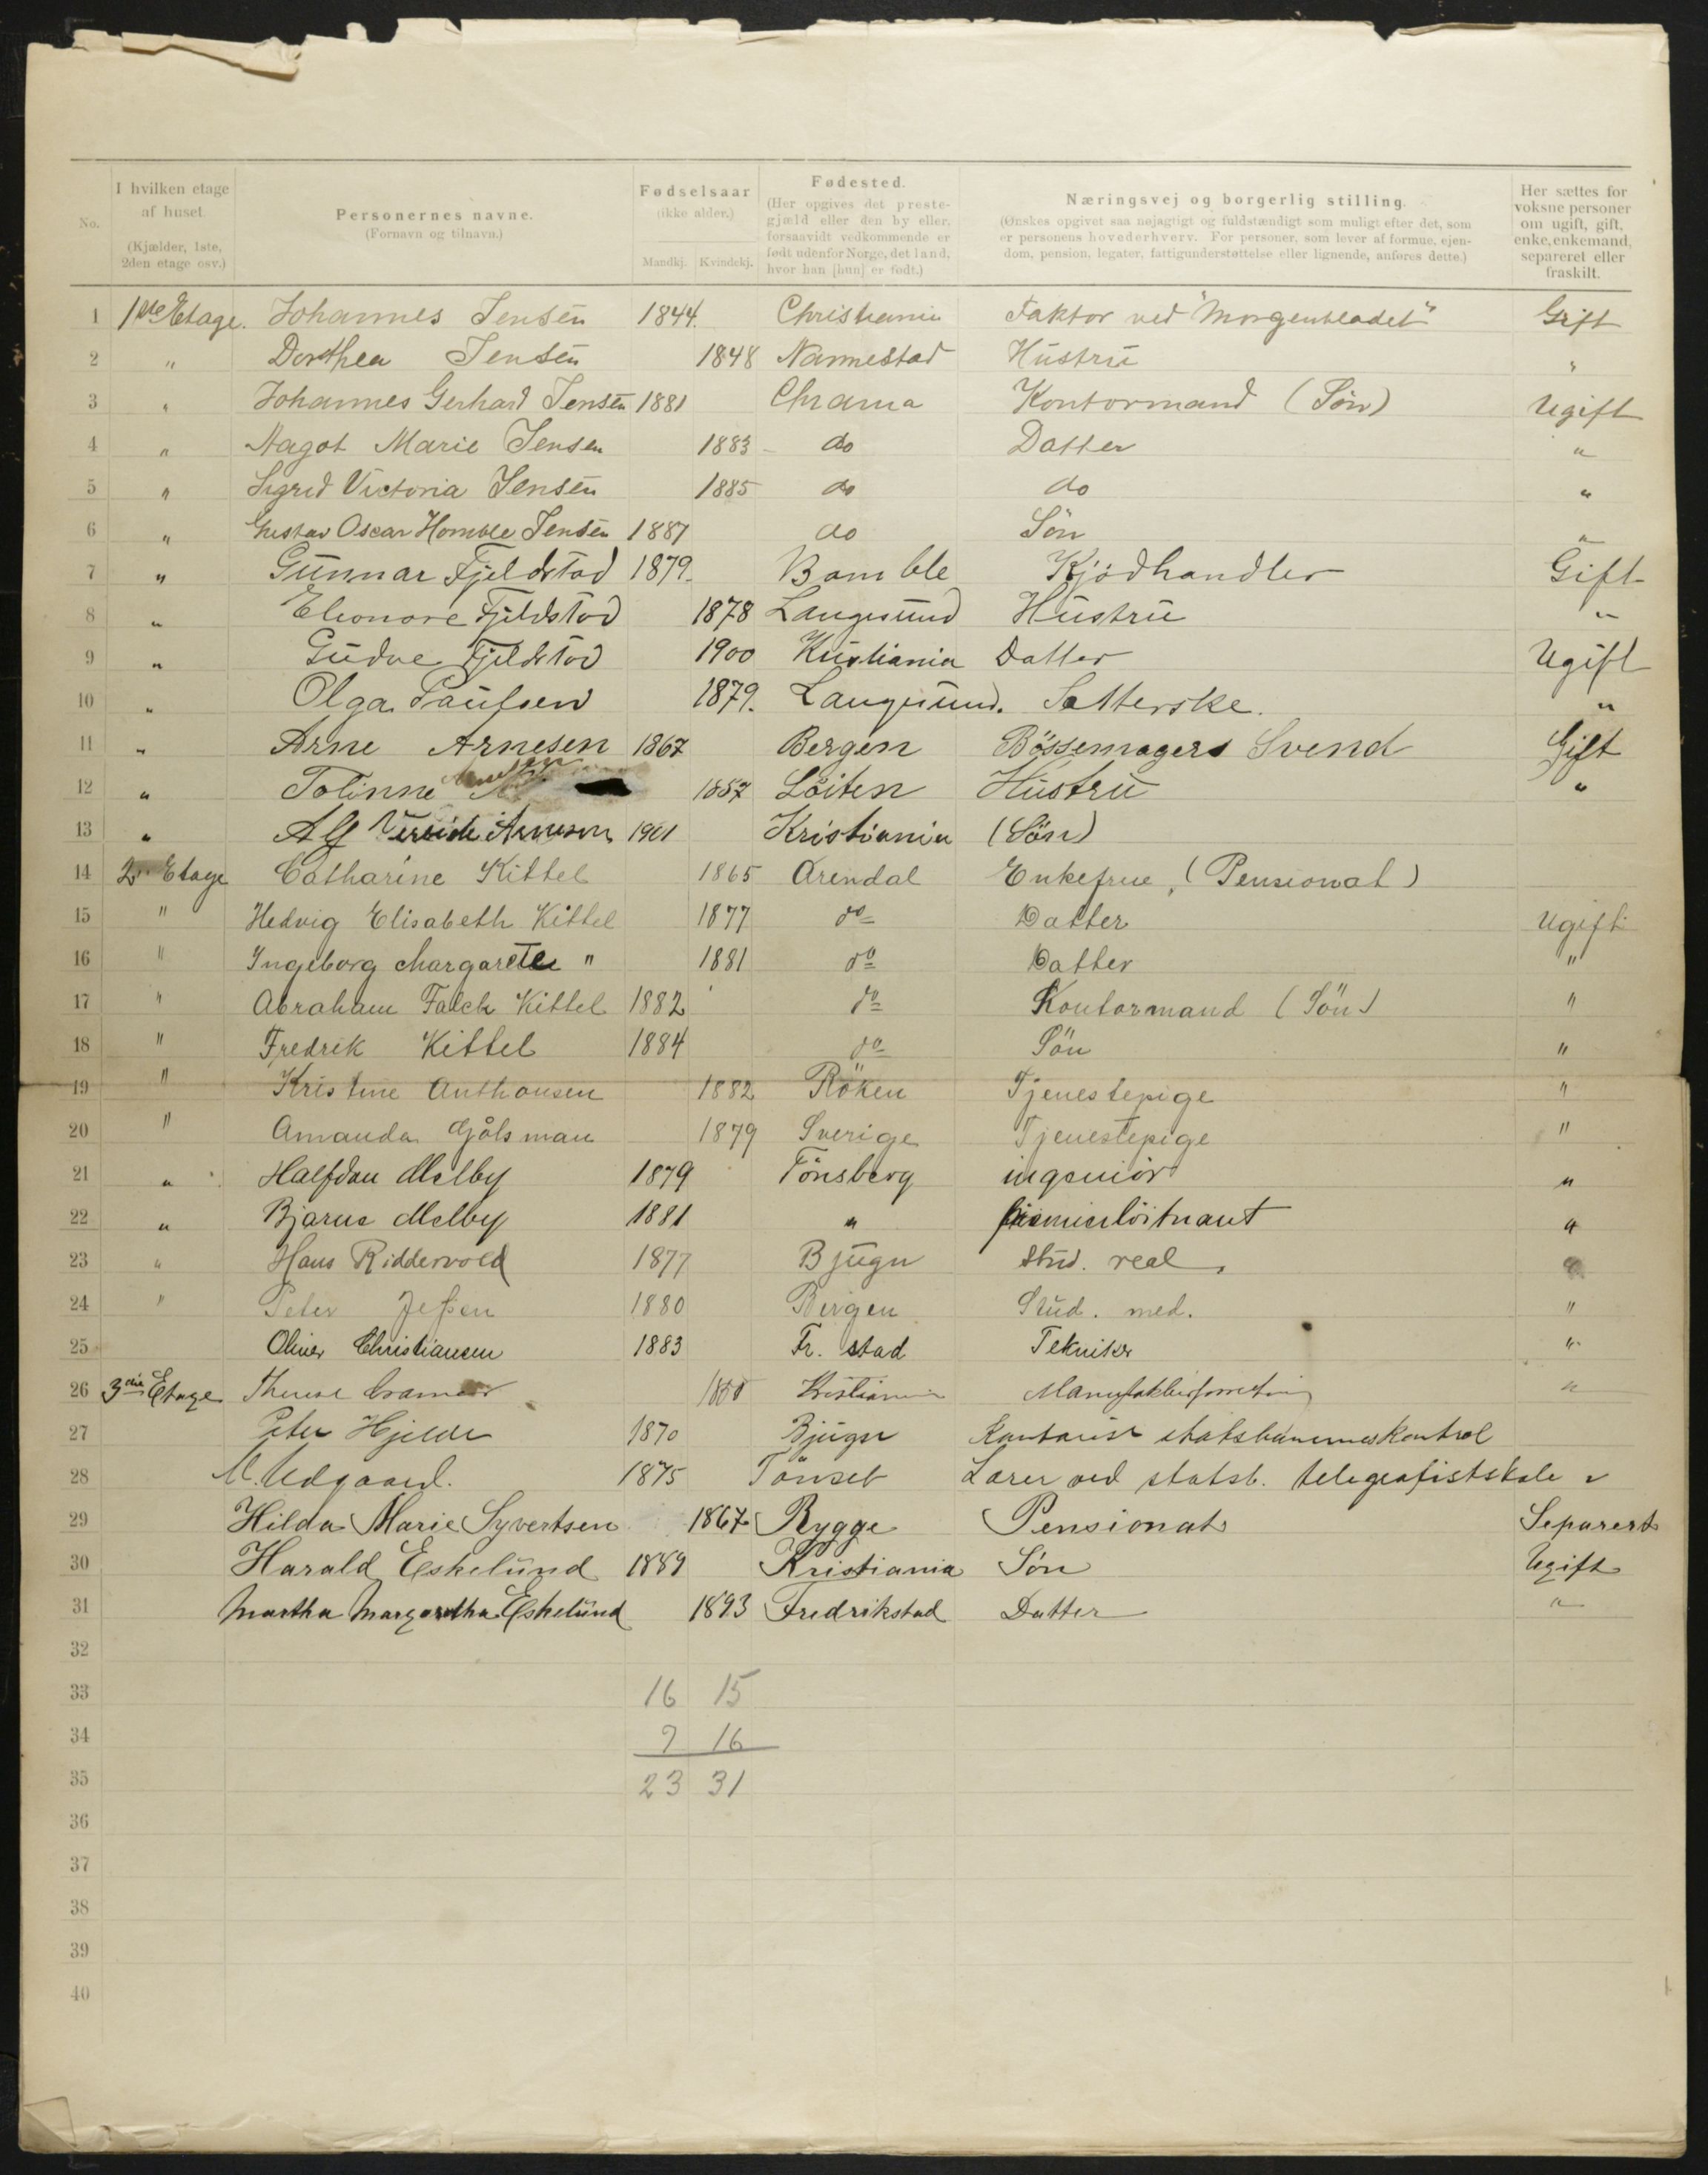 No. I hvilken etage af huset (Kjælder, 1ste, 2den etage osv.) Personernes navne. (Fornavn og tilnavn.) Fødselsaar (ikke alder.) Mandkj. Kvindekj. Fødested. (Her opgives det prestegjæld eller den by eller, forsaavidt vedkommende er født udenfor Norge, det land, hvor han [hun] er født.) Næringsvej og borgerlig stilling. (Ønskes opgivet saa nøjagtigt og fuldstændigt som muligt efter det, som er personens hovederhverv. For personer, som lever af formue, ejendom, pension, legater, fattigunderstøttelse eller lignende, anføres dette.) Her sættes for voksne personer om ugift, gift, enke, enkemand, separeret eller fraskilt.
1 1ste Etage. Johannes Jensen 1844. Christiania Faktor ved "Morgenbladet" Gift
2 " Dorthea Jensen 1848 Nannestad Hustru "
3 " Johannes Gerhard Jensen 1881 Chrania Kontormand (Sön) Ugift
4 " Nagot Marie Jensen 1883 do Datter "
5 " Sigrid Victoria Jensen 1885 do do "
6 " Gustav Oscar Homble Jensen 1887 do Sön "
7 " Gunnar Fjeldstad 1879. Bamble Kjödhandler Gift
8 " Eleonore Fjeldstad 1878 Langesund Hustru "
9 " Fjeldstad 1900 Kristiania Datter Ugift
10 " Olga Paulsen 1879. Langesund. Satterske. "
11 " Arne Arnesen 1867 Bergen Bössemagers Svend Gift
12 " Tolinne Arnesen 1857 Löiten Hustru "
13 " Alf Arnesen 1901 Kristiania (Sön)
14 2. Etage Catharine Kittel 1865 Arendal Enkefrue, (Pensionat)
15 " Hedvig Elisabeth Kittel 1877 do Datter Ugift
16 " Ingeborg Margarete " 1881 do Datter "
17 " Abraham Falck Kittel 1882 do Kontormand (Sön) "
18 " Fredrik Kittel 1884 do Sön "
19 " Kristine Anthonsen 1882 Röken Tjenestepige "
20 " Amanda Gålsman 1879 Sverige Tjenestepige "
21 " Halfdan Melby 1879 Tönsberg ingeniör "
22 " Bjarne Melby 1881 " premierlöitnant "
23 " Hans Riddervold 1877 Bjugn stud. real. "
24 " Peter Jessen 1880 Bergen Stud. med. "
25 Oliver Christiansen 1883 Fr. stad Tekniker "
26 3die Etage Cramer Kristiania "
27 Peter Hjelde 1870 Bjugn Kontorist statsbanernes Kontrol
28 M. Udgaard. 1875 Tönset Lærer ved statsb. telegrafistskole "
29 Hilda Marie Syvertsen 1867 Rygge Pensionat Separert
30 Harald Eskelund 1889 Kristiania Sön Ugift
31 Martha Margaretha Eskelund 1893 Fredrikstad Datter "
32
33 16 15
34 7 16
35 23 31
36
37
38
39
40